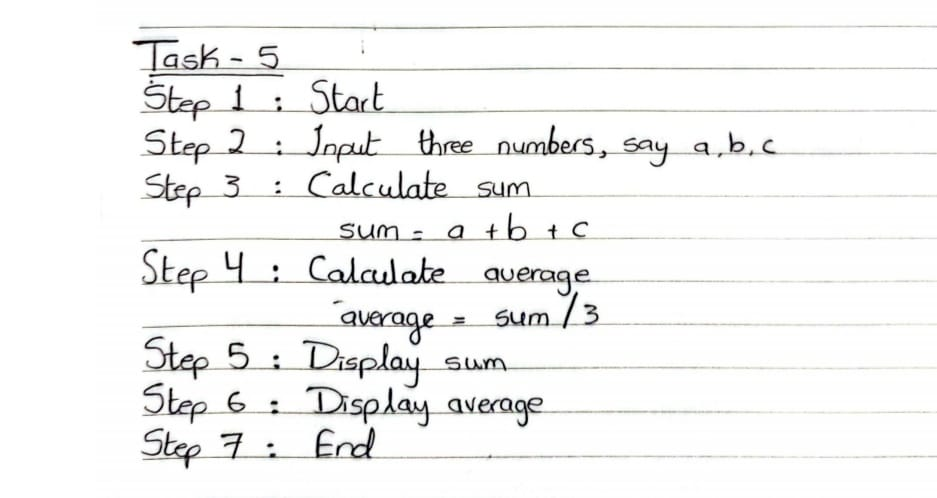 Task - 5
Step 1 : Start
Step 2 : Input three numbers, say a, b, c
Step 3 : Calculate sum
sum = a + b + c
Step 4 : Calculate average
average = sum / 3
Step 5 : Display sum
Step 6 : Display average
Step 7 : End